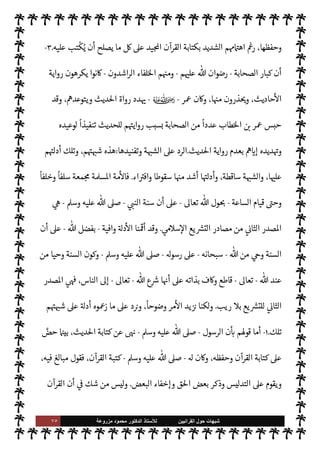 وحفظها، رغم اهتمامهم الشديد بكتابة القرآن المجيد على كل ما يصلح أن يُكْتب عليه.٣-
أن كبار الصحابة - رضوان الله عليهم - ومنهم الخلفاء الراشدون - كانوا يكرهون رواية
الأحاديث، ويحذرون منها، وكان عمر - ﷺ - يهدد رواة الحديث ويتوعدهم، وقد
حبس عمر بن الخطاب عدداً من الصحابة بسبب روايتهم للحديث تنفيذاً لوعيده
وتهديده إياهم بعدم رواية الحديث.الرد على الشبهة وتفنيدها:هذه شبهتهم، وتلك أدلتهم
عليها، والشبهة ساقطة، وأدلتها أشد منها سقوطا وافتراء. فالأمة المسلمة مجمعة سلفاً وخلفاً
وحتى قيام الساعة - بحول الله تعالى - على أن سنة النبي - صلى الله عليه وسلم - هي
المصدر الثاني من مصادر التشريع الإسلامي. وقد أقمنا الأدلة وافية - بفضل الله - على أن
السنة وحي من الله - سبحانه - على رسوله - صلى الله عليه وسلم - وكون السنة وحيا من
عند الله - تعالى - قاطع وكاف بذاته على أنها شرع الله - تعالى - إلى الناس، فهي المصدر
الثاني للتشريع بلا ريب. ولكنا نزيد الأمر وضوحاً، ونرد على ما زعموه أدلة على شبهتهم
تلك.١- أما قولهم بأن الرسول - صلى الله عليه وسلم - نهى عن كتابة الحديث، بينما حضَّ
على كتابة القرآن وحفظه، وكان له - صلى الله عليه وسلم - كتبة القرآن، فقول مبالغ فيه،
ويقوم على التدليس وذكر بعض الحق وإخفاء البعض. وليس من شك في أن القرآن
شبهات حول القرآنيين للأستاذ الدكتور محمود مزروعة ٢٥